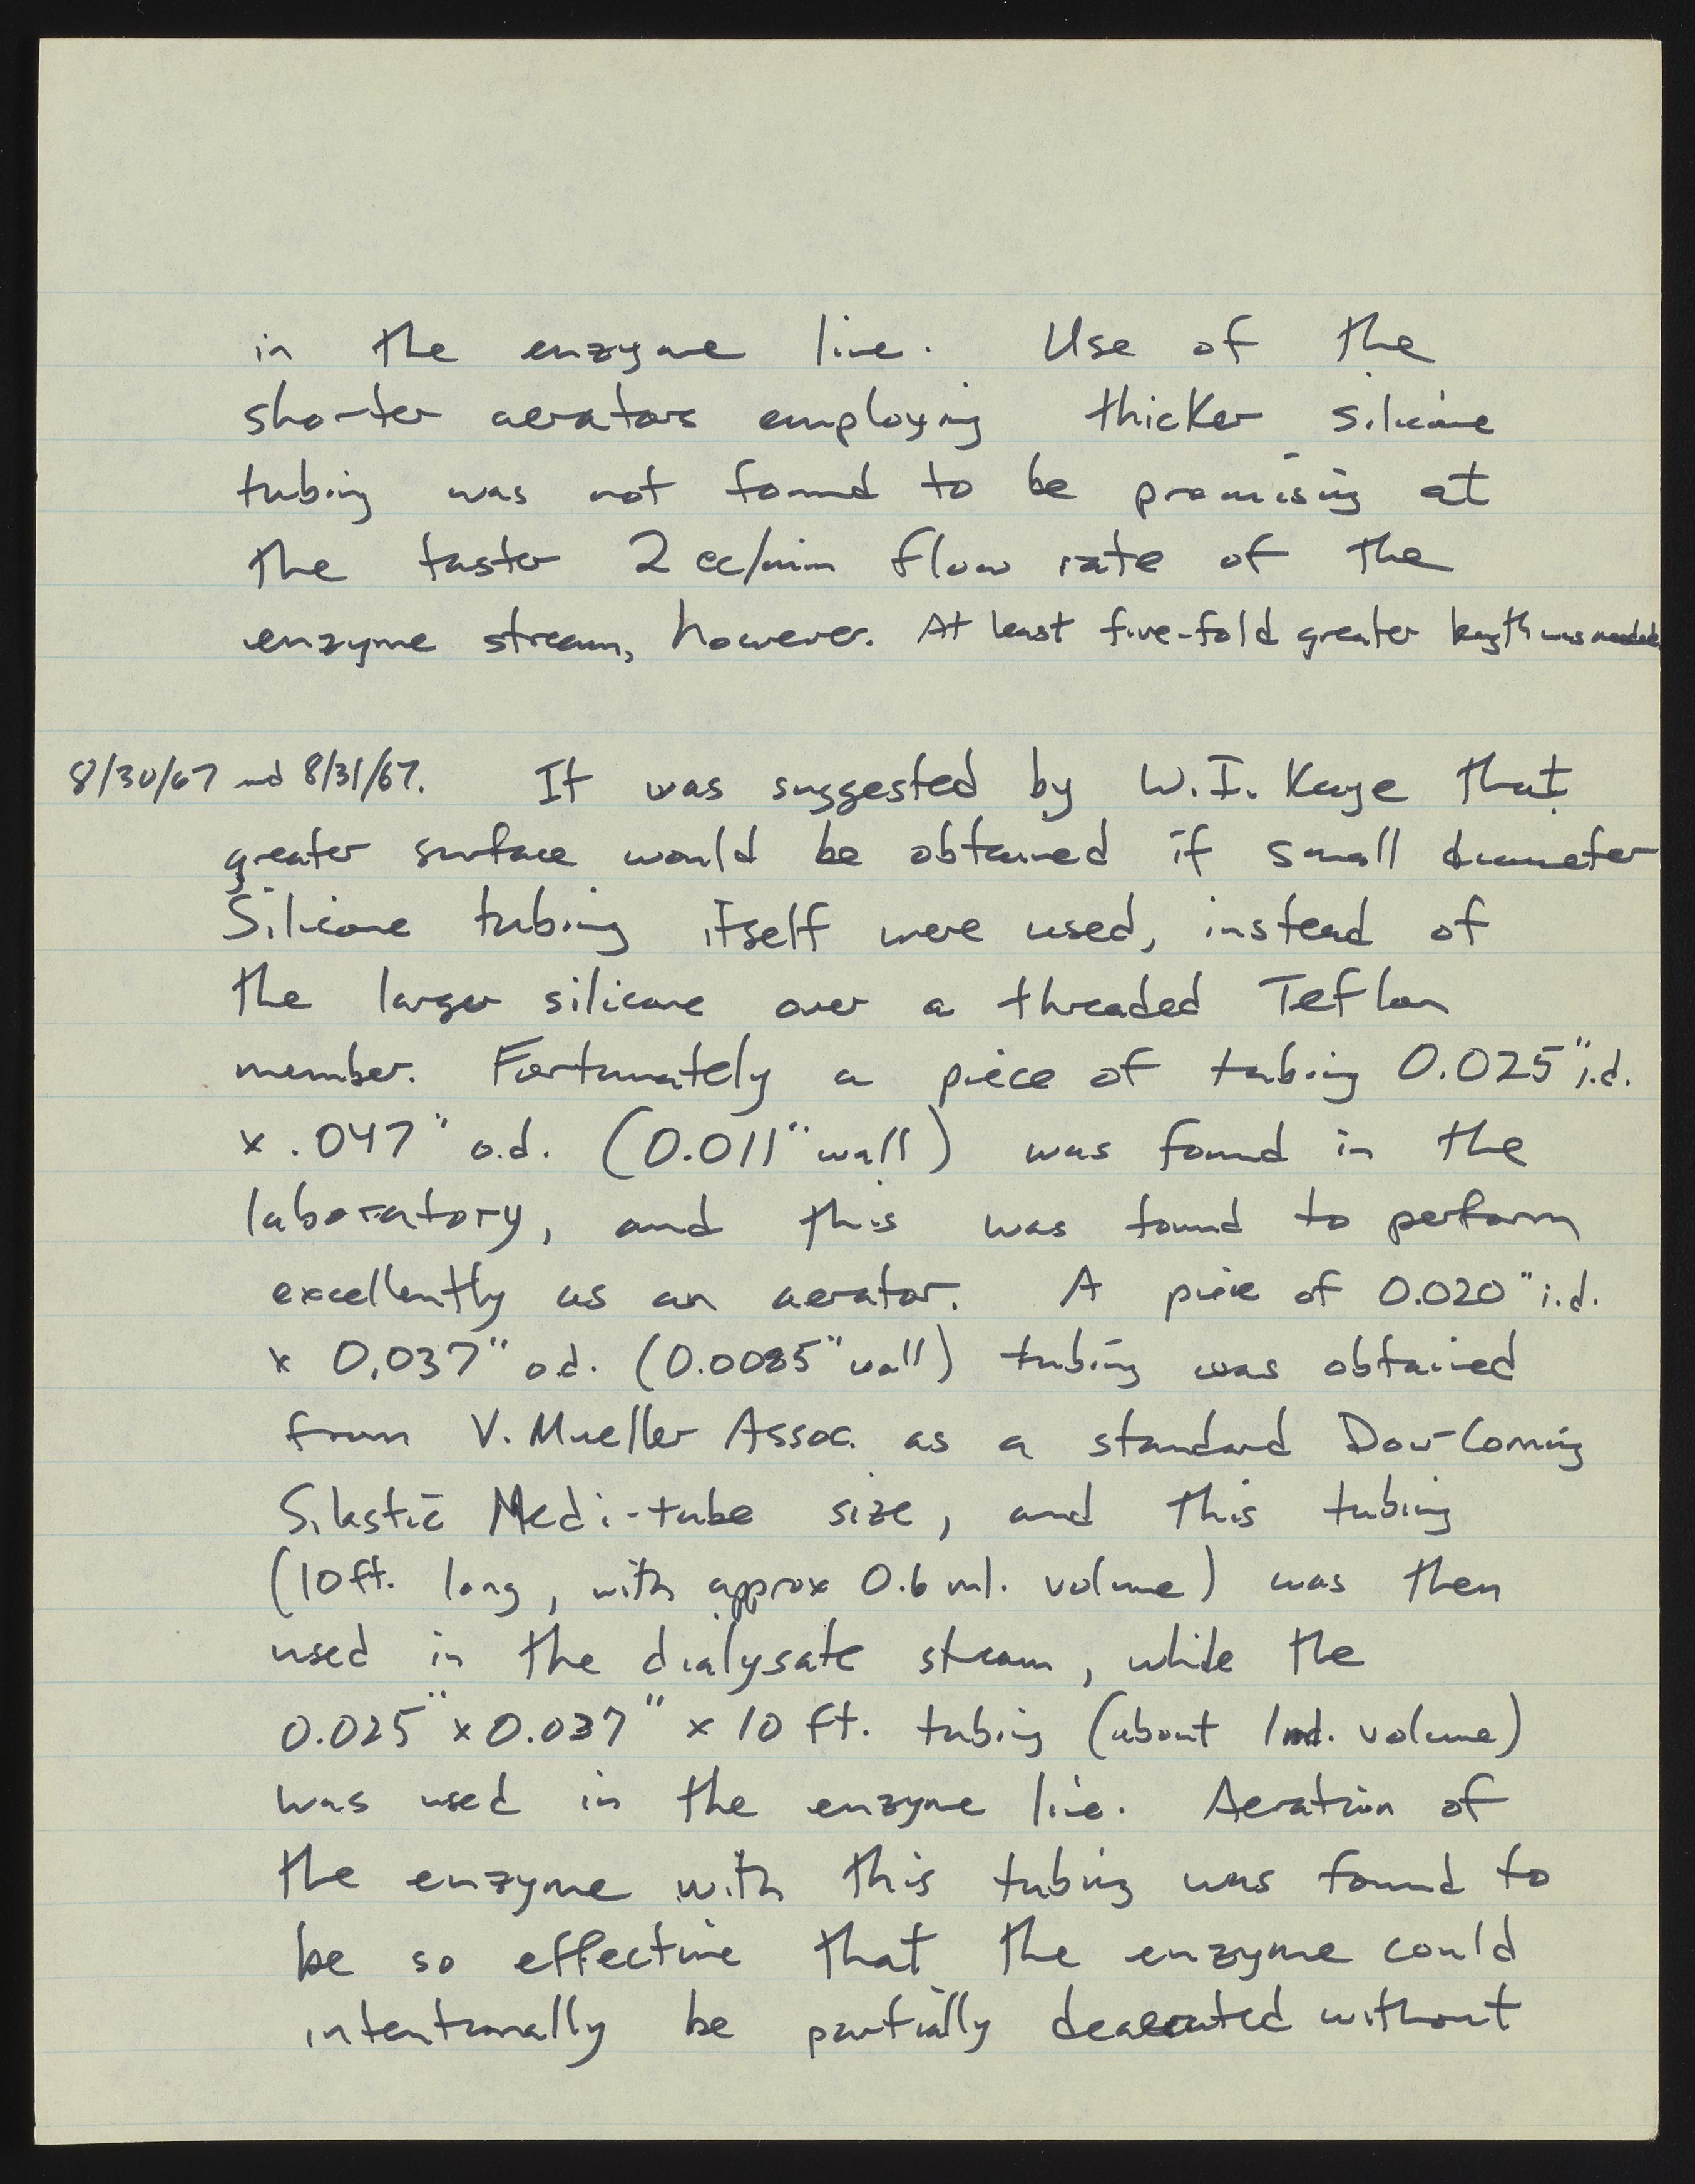 in the enzyme line. Use of the
shorter aerators employing thicker silicone
tubing was not found to be promising at
the faster 2 cc/min flow rate of the
enzyme stream, however. At least five-fold greater length was needed
8/30/67 and 8/31/67. It was suggested by W.I. Kaye that
greater surface would be obtained if small diameter
Silicone tubing itself were used, instead of
the larger silicone over a threaded Teflon
member. Fortunately a piece of tubing 0.025" i.d.
x .047" o.d. (0.011" wall) was found in the
laboratory, and this was found to perform
excellently as an aerator. A piece of 0.020" i.d.
x 0.037" o.d. (0.0085" wall) tubing was obtained
from V. Mueller Assoc. as a standard Dow-Corning
Silastic Medi-tube size, and this tubing
(10 ft. long, with approx 0.6 ml. volume) was then
used in the dialysate stream, while the
0.025" x 0.037" x 10 ft. tubing (about 1 ml. volume)
was used in the enzyme line. Aeration of
the enzyme with this tubing was found to
be so effective that the enzyme could
intentionally be partially deaerated without